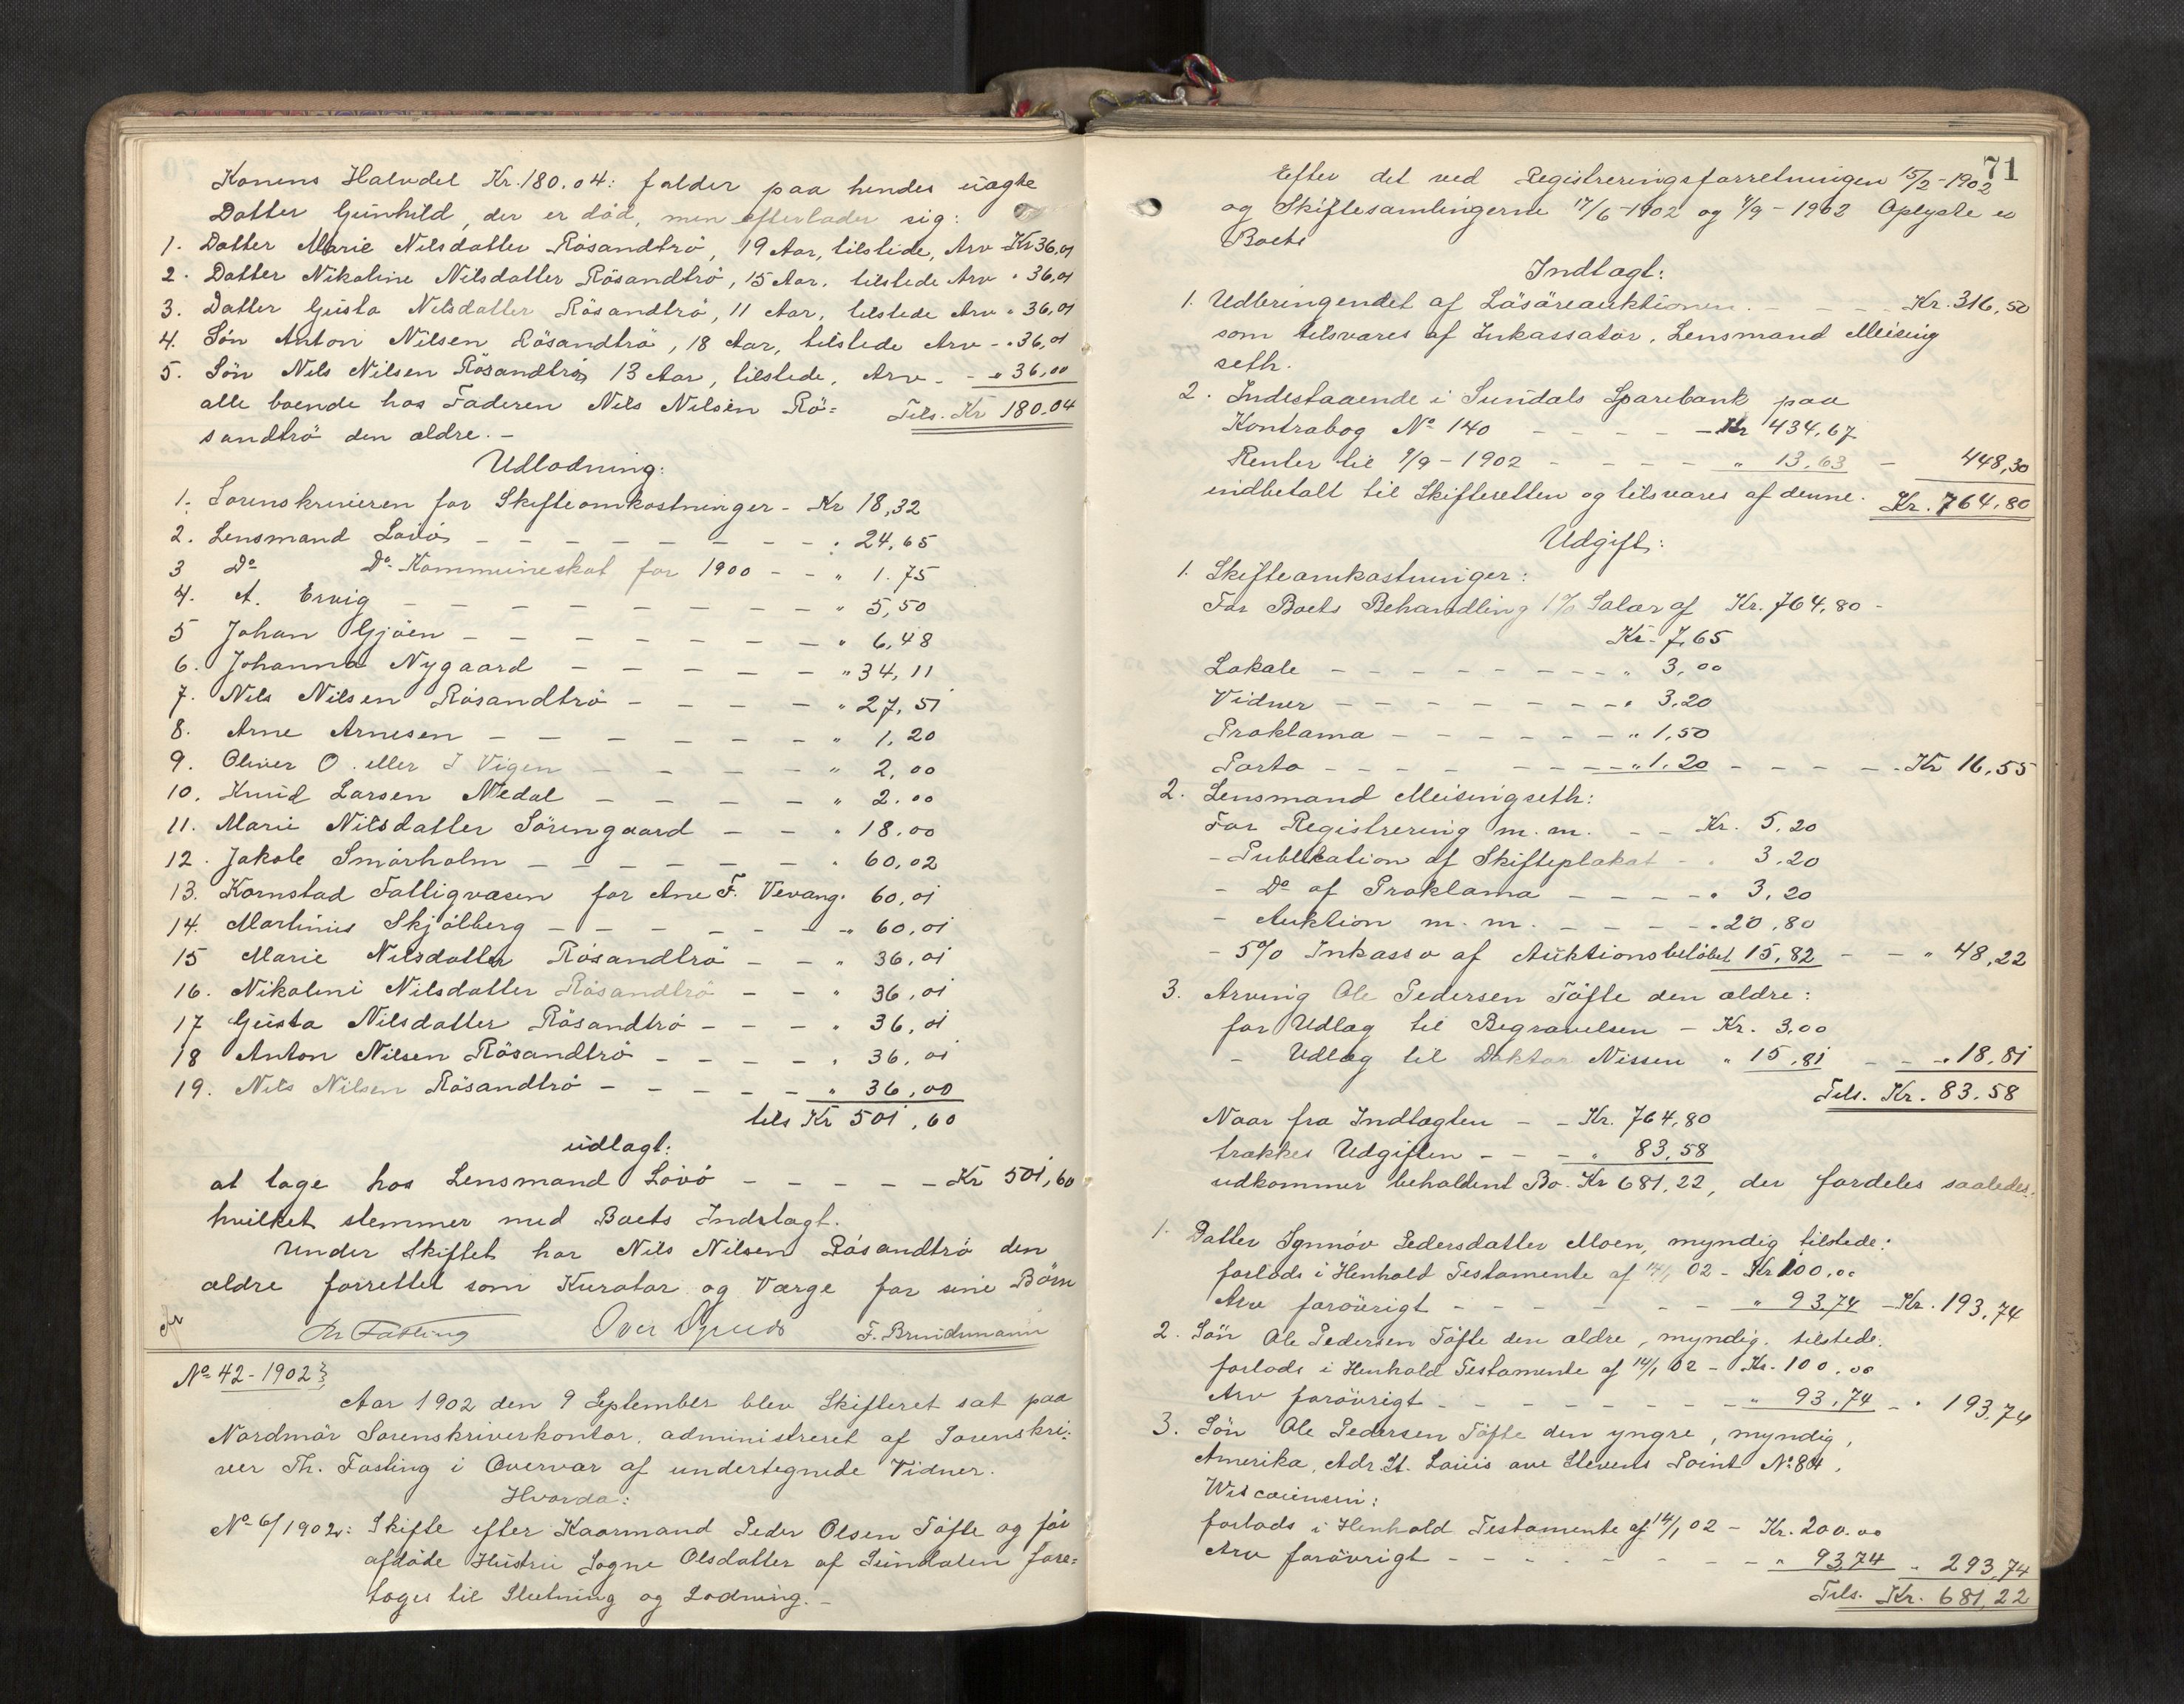 Konens Halvdel Kr. 180.04: falder paa hendes uægte
Datter Gunhild, der er død, men efterlader sig:
1. Datter Marie Nilsdatter Rösandtrö, 19 Aar, tilstede, Arv Kr 36,01
2. Datter Nikoline Nilsdatter Rösandtrö, 15 Aar, tilstede Arv " 36,01
3. Datter Gusta Nilsdatter Rösandtrö, 11 Aar, tilstede Arv " 36,01
4. Sön Anton Nilsen Rösandtrö, 18 Aar, tilstede Arv - " 36,01
5. Sön Nils Nilsen Rösandtrö, 13 Aar, tilstede, Arv - - " 36,00
alle boende hos Faderen Nils Nilsen Rö= Tils. Kr 180.04
sandtrö den ældre. -
Udlodning:
1. Sorenskriveren for Skifteomkostninger - Kr 18,32
2. Lensmand Lövö - - - - - - - - - " 24,65
3 Do Do Kommuneskat for 1900 - - " 1.75
4. A. Ervig - - - - - - - - - - " 5,50
5 Johan Gjöen - - - - - - - - " 6,48
6. Johanna Nygaard - - - - - " 34,11
7. Nils Nilsen Rösandtrö - - - - " 27,51
8. Arne Arnesen - - - - - - - " 1,20
9. Oliver O. eller I Vigen - - - - - " 2,00
10. Knud Larsen Nedal - - - - - " 2.00
11. Marie Nilsdatter Sörengaard - - " 18.00
12. Jakob Smörholm - - - - - - " 60,02
13. Kornstad Fattigvæsen for Ane F. Vevang. 60,01
14. Martinus Skjölberg - - - - - - - " 60,01
15 Marie Nilsdatter Rösandtrö - - " 36,01
16. Nikoline Nilsdatter Rösandtrö - - " 36,01
17 Gusta Nilsdatter Rösandtrö - - - " 36,01
18 Anton Nilsen Rösandtrö - - - - " 36,01
19. Nils Nilsen Rösandtrö - - - - - " 36,00
tils Kr 501,60
udlagt:
at tage hos Lensmand Lövö - - - - - Kr 501,60
hvilket stemmer med Boets Indtægt.
Under Skiftet har Nils Nilsen Rösandtrö den
ældre forrettet som Kurator og Værge for sine Börn
Th Fasling F. Brunchmann
No 42-1902
Aar 1902 den 9 September blev Skifteret sat paa
Nordmör Sorenskriverkontor, administreret af Sorenskri=
ver Th. Fasling i Overvær af undertegnede Vidner.
Hvorda:
No 6/1902: Skifte efter Kaarmand Peder Olsen Töfte og för
afdöde Hustru Sogne Olsdatter af Sundalen fore=
toges til Slutning og Lodning. -
71
Efter det ved Registreringsforretningen 15/2-1902
og Skiftesamlingerne 17/6-1902 og 9/9-1902 Oplyste er
Boets
Indtægt:
1. Udbringendet af Lösöreauktionen - - - Kr. 316,50
som tilsvares af Inkassator, Lensmand Meising
seth.
2. Indestaaende i Sundals Sparebank paa
Kontrabog No 140 - - - - - Kr 434.67
Renter til 9/9-1902 - - - - - " 13.63 - 448,30
indbetalt til Skifteretten og tilsvares af denne. Kr. 764,80
Udgift:
1. Skifteomkostninger:
For Boets Behandling 1% Salær af Kr. 764,80 -
Kr. 7,65
Lokale - - - - - - - - - " 3,00
Vidner - - - - - - - - " 3.20
Proklama - - - - - - - " 1,50
Porto - - - - - - - - " 1.20 - - - - Kr 16,55
2. Lensmand Meisingseth:
For Registrering m.m. - - Kr. 5,20
- Publikation af Skifteplakat - " 3.20
- Do af Proklama - - - - - " 3,20
- Auktion m. m. - - - - - " 20,80
- 5% Inkasso af Auktionsbelöbet 15,82 - - " 48,22
3. Arving Ole Pedersen Töfte den ældre:
for Udlæg til Begravelsen - Kr. 3,00
- Udlæg til Doktor Nissen " 15,81 - - " 18,81
Tils. Kr. 83.58
Naar fra Indtægten - - Kr. 764,80
trækkes Udgiften - - - " 83,58
udkommer beholdent Bo. Kr 681,22, der fordeles saaledes:
1. Datter Synnöv Pedersdatter Moen, myndig, tilstede:
forlods i Henhold Testamente af 14/1 02 - Kr 100.00
Arv forövrigt - - - - - - - " 93,74 - Kr. 193,74
2. Sön Ole Pedersen Töfte den ældre, myndig, tilstede:
forlods i Henhold Testamente af 14/1 02 - Kr. 100.00
Arv forövrigt - - - - - - - - " 93,74 - " 193,74
3. Sön Ole Pedersen Töfte den yngre, myndig,
Amerika, Adr. St. Louis ave Stevens Point No 804,
forlods i Henhold Testamente af 14/1 02 - Kr. 200.00
Arv forövrigt - - - - - - - - " 93,74 " 293,74
Tils. Kr. 681,22